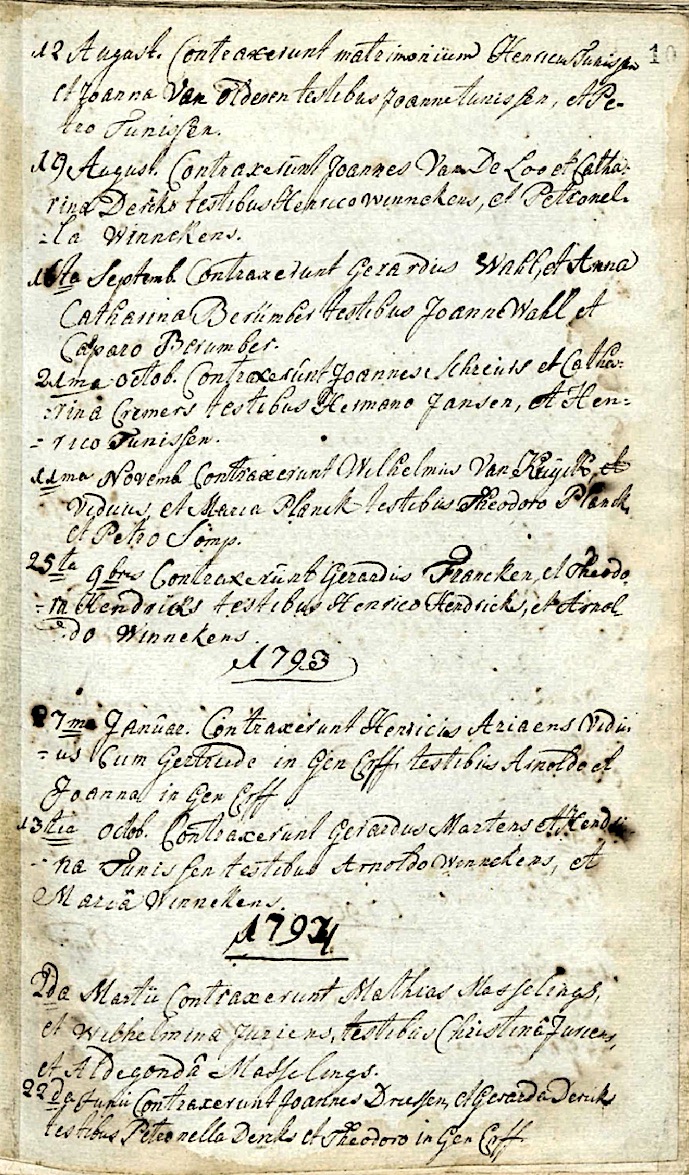 10
12 August. Contraxerunt matrimonium Henricus Tunissen
et Joanna Van Olderen testibus Joanne tunissen, et Pe-
tro Tunissen.
19 August. Contraxerunt Joannes Van De Loo et Catha-
rina Dercks testibus Henrico winnekens, et Petronel-
-la Winnekens.
Septemb. Contraxerunt Gerardus Wahl, et Anna
Catharina Berumber testibus Joanne Wahl et
Casparo Berumber.
21ma octob. Contraxerunt Joannes Schreurs et Catha-
-rina Cremers testibus Hermano Jansen, et Hen=
=rico Tunissen.
11ma Novemb Contraxerunt Wilhelmus Van Kuijck, et
Viduus, et Maria Planck testibus Theodoro Planck
et Petro Somp.
25ta 9bris Contraxerunt Gerardus Francken, et Theodo
-ra Hendricks testibus Henrico Hendricks, et Arnol
-do Winnekens.
1793
7ma Januar. Contraxerunt Henricus Ariaens Vidu-
=us Cum Gertrude in Gen Erff testibus Arnoldo et
Joanna in Gen Erff
13tia octob. Contraxerunt Gerardus Martens et Hendri
-na Tunissen testibus Arnoldo Winnekens, et
Mariâ Winnekens.
1794
2da Martii Contraxerunt Mathias Masselings,
et Wilhelmina Juriens, testibus Christinâ Juriens,
et Aldegondâ Masselings.
22da Junii Contraxerunt Joannes Driessen, et Gerarda Dericks
testibus Petronella Dericks et Theodoro in Gen Erff